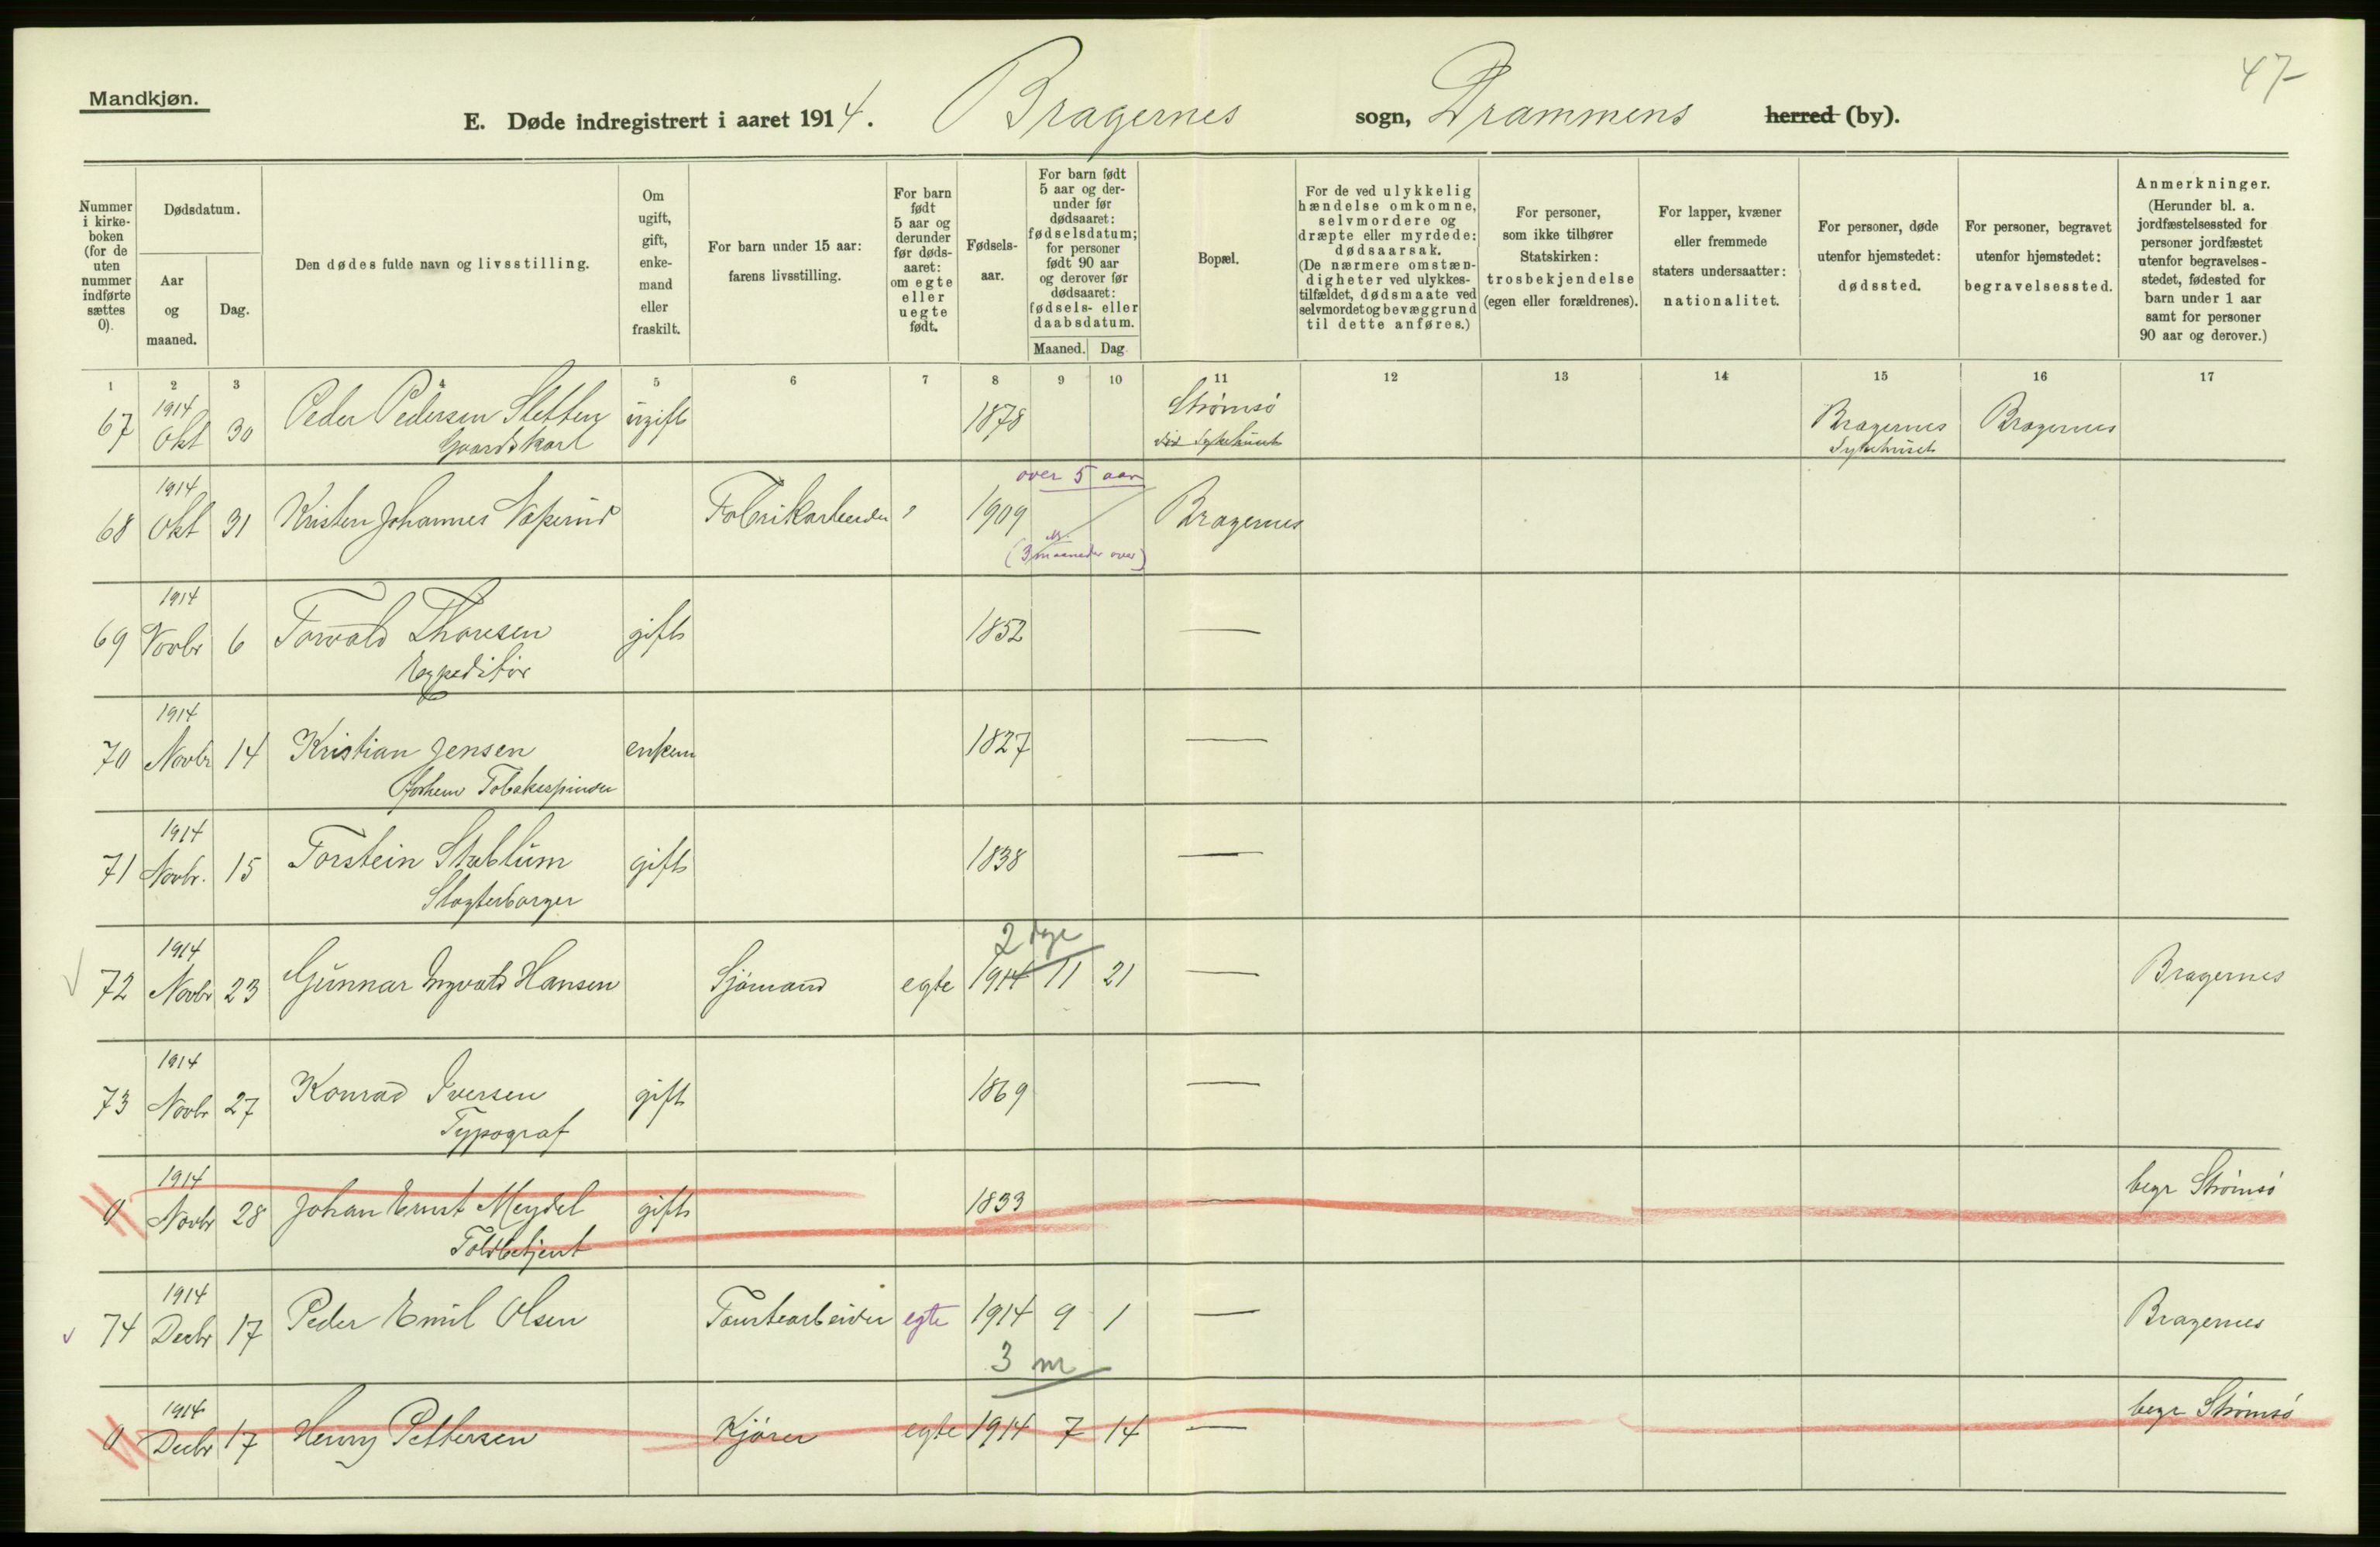 47
Mandkjøn.
E. Døde indregistrert i aaret 1914. Bragernes sogn, Drammens herred (by).
Nummer i kirke-boken (for de uten nummer indførte sættes 0).
Dødsdatum.
Aar og maaned.
Dag.
Den dødes fulde navn og livsstilling.
Om ugift, gift, enke-mand eller fraskilt.
For barn under 15 aar: farens livsstilling.
For barn født 5 aar og derunder før døds-aaret: om egte eller uegte født.
Fødsels-aar.
For barn født 5 aar og der-under før dødsaaret: fødselsdatum; for personer født 90 aar og derover før dødsaaret: fødsels- eller daabsdatum.
Maaned. Dag.
Bopæl.
For de ved ulykkelig hændelse omkomne, selvmordere og dræpte eller myrdede: dødsaarsak. (De nærmere omstæn-digheter ved ulykkes-tilfældet, dødsmaate ved selvmordet og bevæggrund til dette anføres.)
For personer, som ikke tilhører Statskirken: trosbekjendelse (egen eller forældrenes).
For lapper, kvæner eller fremmede staters undersaatter: nationalitet.
For personer, døde utenfor hjemstedet: dødssted.
For personer, begravet utenfor hjemstedet: begravelsessted.
Anmerkninger. (Herunder bl. a. jordfæstelsessted for personer jordfæstet utenfor begravelses-stedet, fødested for barn under 1 aar samt for personer 90 aar og derover.)
1 2 3 4 5 6 7 8 9 10 11 12 13 14 15 16 17
67 1914 Okt 30 Peder Pedersen Sletten ugift 1878 Strømsø Bragernes Bragernes
Gaardskarl Sykehuset Sykehuset
over 5 aar
68 1914 Okt 31 Kristen Johannes Fabrikarbeider 1909 Bragernes
(3 maaneder over)
69 1914 Novbr 6 Torvald Thoresen gift 1852 —
Expeditør
70 1914 Novbr 14 Kristian Jensen enkem 1827 —
forhenv Tobakspinder
71 1914 Novbr. 15 Torstein Stablum gift 1838 —
Slagterborger
2 dge
72 1914 Novbr 23 Gunnar Ingvald Hansen Sjømand egte 1914 11 21 — Bragernes
73 1914 Novbr 27 Konrad Iversen gift 1869 —
Typograf
0 1914 Novbr 28 Johan Ernst Meydel gift 1833 — begr Strømsø
Toldbetjent
74 1914 Decbr 17 Peder Emil Olsen Tomtearbeider egte 1914 9 1 — Bragernes
3 m
0 1914 Decbr 17 Henry Pettersen Kjører egte 1914 7 14 — begr Strømsø